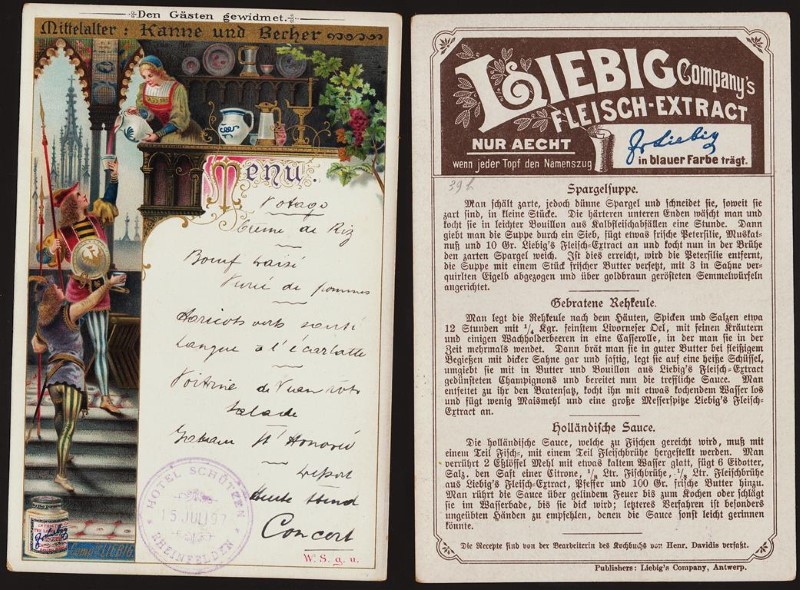 Den Gästen gewidmet.
Mittelalter: Kanne und Becher
Menu.
Potage
Crème de Riz
Boeuf braisé
Purée de pommes
Haricots verts sauté
Langue à l'écarlatte
Poitrine de Veau rôti
Salade
Gateau St Honoré
Dessert
Heute Abend
Concert
HOTEL SCHÜTZEN
15 JULI 97
RHEINFELDEN
W. S. g. u.
LIEBIG Company's
FLEISCH-EXTRACT
NUR AECHT
wenn jeder Topf den Namenszug
J v Liebig
in blauer Farbe trägt.
Spargelsuppe.
Man schält zarte, jedoch dünne Spargel und schneidet sie, soweit sie
zart sind, in kleine Stücke. Die härteren unteren Enden wäscht man und
kocht sie in leichter Bouillon aus Kalbfleischabfällen eine Stunde. Dann
giebt man die Suppe durch ein Sieb, fügt etwas frische Petersilie, Muskat-
nuß und 10 Gr. Liebig's Fleisch-Extract an und kocht nun in der Brühe
den zarten Spargel weich. Ist dies erreicht, wird die Petersilie entfernt,
die Suppe mit einem Stück frischer Butter versetzt, mit 3 in Sahne ver-
quirlten Eigelb abgezogen und über goldbraun gerösteten Semmelwürfeln
angerichtet.
Gebratene Rehkeule.
Man legt die Rehkeule nach dem Häuten, Spicken und Salzen etwa
12 Stunden mit ¼ Kgr. feinstem Livorneser Oel, mit feinen Kräutern
und einigen Wachholderbeeren in eine Casserolle, in der man sie in der
Zeit mehrmals wendet. Dann brät man sie in guter Butter bei fleißigem
Begießen mit dicker Sahne gar und saftig, legt sie auf eine heiße Schüssel,
umgiebt sie mit in Butter und Bouillon aus Liebig's Fleisch-Extract
gedünsteten Champignons und bereitet nun die treffliche Sauce. Man
entfettet zu ihr den Bratensatz, kocht ihn mit etwas kochendem Wasser los
und fügt wenig Maismehl und eine große Messerspitze Liebig's Fleisch-
Extract an.
Holländische Sauce.
Die holländische Sauce, welche zu Fischen gereicht wird, muß mit
einem Teil Fisch-, mit einem Teil Fleischbrühe hergestellt werden. Man
verrührt 2 Eßlössel Mehl mit etwas kaltem Wasser glatt, fügt 6 Eidotter,
Salz, den Saft einer Citrone, ¼ Ltr. Fischbrühe, ¼ Ltr. Fleischbrühe
aus Liebig's Fleisch-Extract, Pfeffer und 100 Gr. frische Butter hinzu.
Man rührt die Sauce über gelindem Feuer bis zum Kochen oder schlägt
sie im Wasserbade, bis sie dick wird; letzteres Verfahren ist besonders
ungeübten Händen zu empfehlen, denen die Sauce sonst leicht gerinnen
könnte.
Die Recepte sind von der Bearbeiterin des Kochbuchs von Henr. Davidis verfaßt.
Publishers: Liebig's Company, Antwerp.